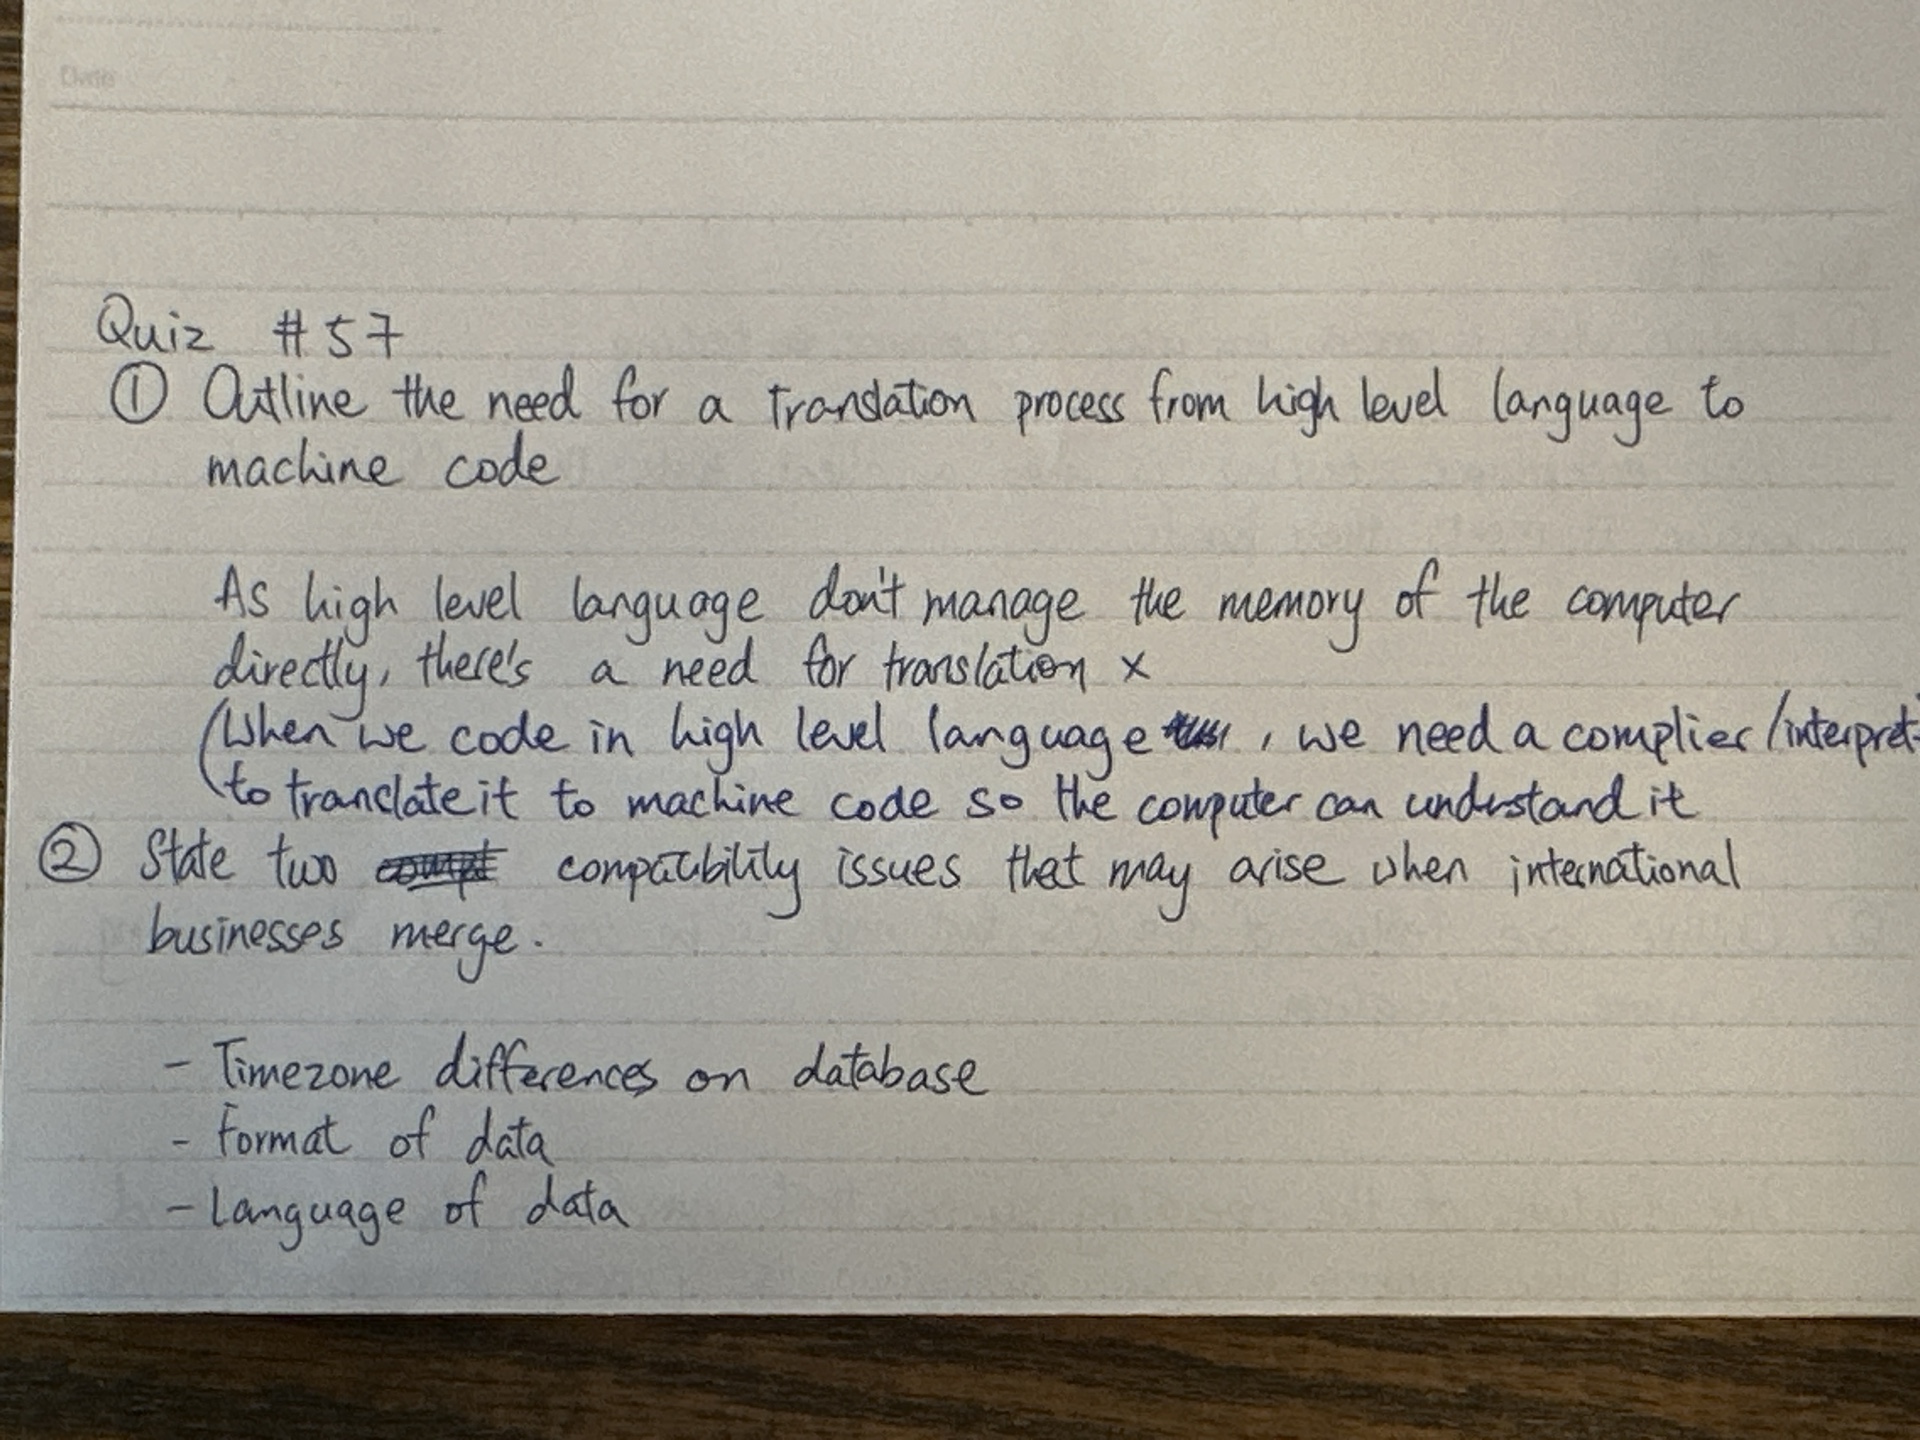 Date
Quiz #57
① Outline the need for a translation process from high level language to
machine code
As high level language don't manage the memory of the computer
directly, there's a need for translation x
(When we code in high level language , we need a complier/interpret
to translate it to machine code so the computer can understand it
② State two compatibility issues that may arise when international
businesses merge.
- Timezone differences on database
- Format of data
- Language of data